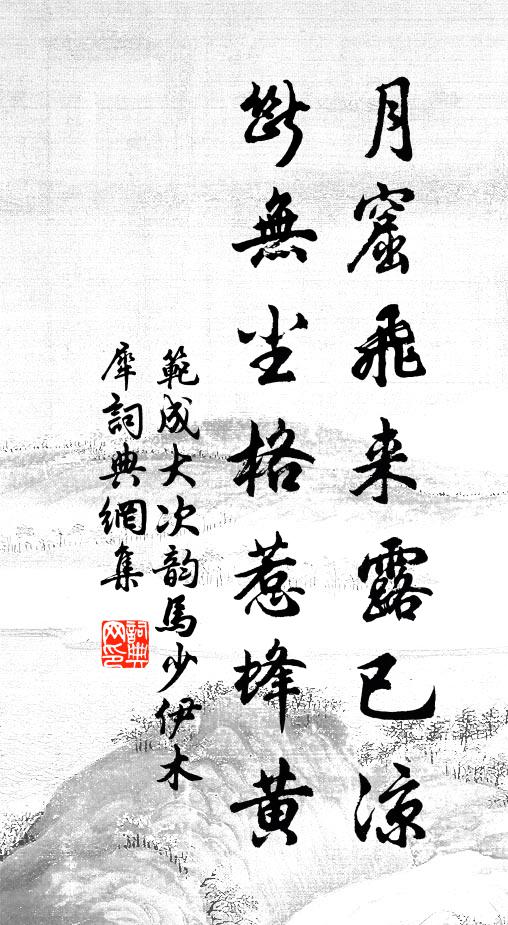 月窟飛来露已凉
斷無尘格惹蜂黄
範成大次韵馬少伊木
犀詞典網集
詞典网印